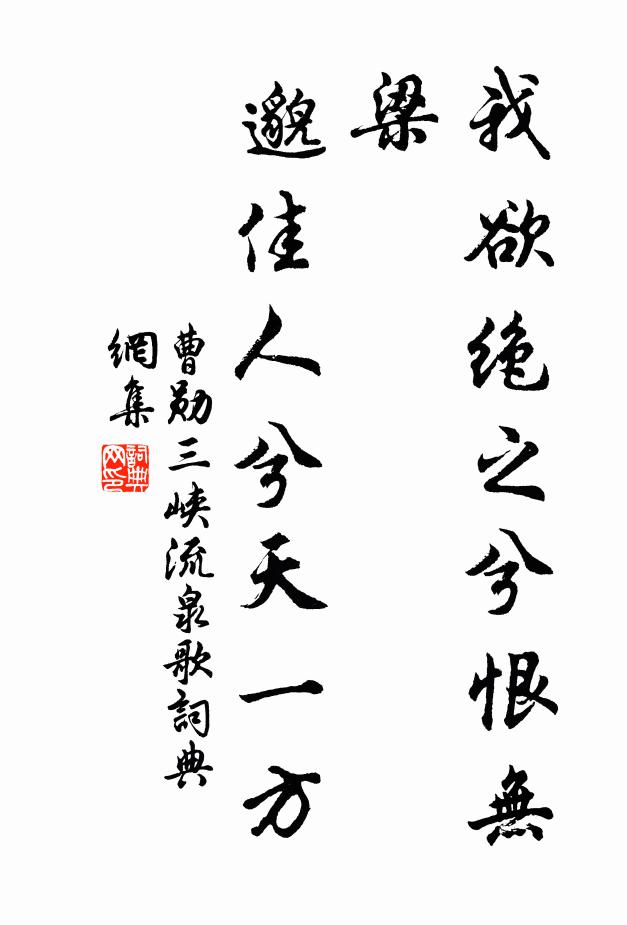 我欲绝之兮恨無
梁
邈佳人兮天一方
曹勛三峽流泉歌詞典
網集
詞典
网印